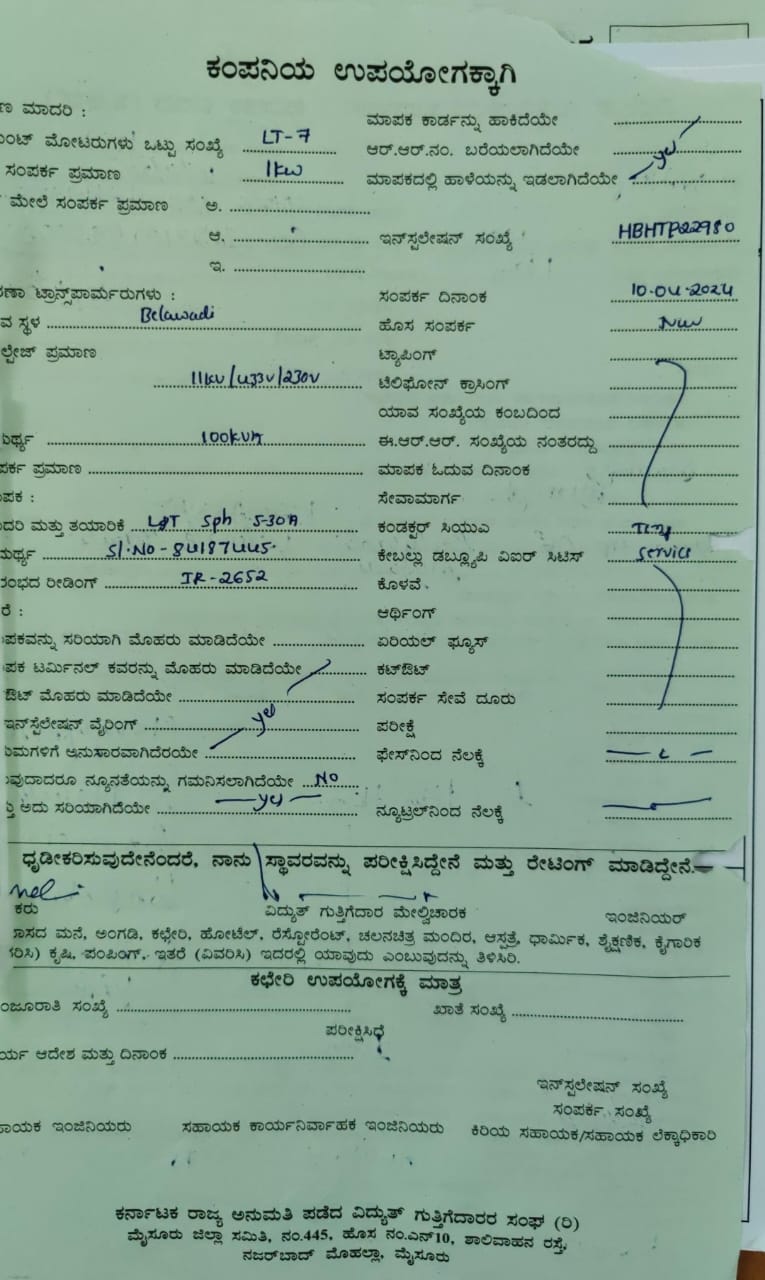 ಕಂಪನಿಯ ಉಪಯೋಗಕ್ಕಾಗಿ
ಮಾದರಿ :
ಮಾಪಕ ಕಾರ್ಡನ್ನು ಹಾಕಿದೆಯೇ
ಮೋಟರುಗಳು ಒಟ್ಟು ಸಂಖ್ಯೆ LT-7
ಆರ್.ಆರ್.ನಂ. ಬರೆಯಲಾಗಿದೆಯೇ
ಸಂಪರ್ಕ ಪ್ರಮಾಣ 1kw
ಮಾಪಕದಲ್ಲಿ ಹಾಳೆಯನ್ನು ಇಡಲಾಗಿದೆಯೇ yes
ಮೇಲೆ ಸಂಪರ್ಕ ಪ್ರಮಾಣ ಅ.
ಆ.
ಇನ್‌ಸ್ಟಲೇಷನ್ ಸಂಖ್ಯೆ HBHTP22980
ಇ.
ಟ್ರಾನ್ಸ್‌ಪಾರ್ಮರುಗಳು :
ಸಂಪರ್ಕ ದಿನಾಂಕ 10-04-2024
ಸ್ಥಳ Belawadi
ಹೊಸ ಸಂಪರ್ಕ New
ಪ್ರಮಾಣ
ಟ್ಯಾಪಿಂಗ್
11kv/433v/230v
ಟೆಲಿಫೋನ್ ಕ್ರಾಸಿಂಗ್
ಯಾವ ಸಂಖ್ಯೆಯ ಕಂಬದಿಂದ
100kVA
ಈ.ಆರ್.ಆರ್. ಸಂಖ್ಯೆಯ ನಂತರದ್ದು
ಪ್ರಮಾಣ
ಮಾಪಕ ಓದುವ ದಿನಾಂಕ
ಸೇವಾಮಾರ್ಗ
ಮತ್ತು ತಯಾರಿಕೆ L&T Sph 5-30A
ಕಂಡಕ್ಟರ್ ಸಿಯುಎ Temp
Sl.No-84187445
ಕೇಬಲ್ಲು ಡಬ್ಲ್ಯೂಪಿ ವಿಐರ್ ಸಿಟಿಸ್ Service
ರೀಡಿಂಗ್ IR-2652
ಕೊಳವೆ
ಆರ್ಥಿಂಗ್
ಸರಿಯಾಗಿ ಮೊಹರು ಮಾಡಿದೆಯೇ
ಏರಿಯಲ್ ಫ್ಯೂಸ್
ಟರ್ಮಿನಲ್ ಕವರನ್ನು ಮೊಹರು ಮಾಡಿದೆಯೇ
ಕಟ್‌ಔಟ್
ಮೊಹರು ಮಾಡಿದೆಯೇ
ಸಂಪರ್ಕ ಸೇವೆ ದೂರು
ಇನ್‌ಸ್ಪೆಲೇಷನ್ ವೈರಿಂಗ್ yes
ಪರೀಕ್ಷೆ
ಅನುಸಾರವಾಗಿದೆರಯೇ
ಫೇಸ್‌ನಿಂದ ನೆಲಕ್ಕೆ
ನ್ಯೂನತೆಯನ್ನು ಗಮನಿಸಲಾಗಿದೆಯೇ NO
ಅದು ಸರಿಯಾಗಿದೆಯೇ yes
ನ್ಯೂಟ್ರಲ್‌ನಿಂದ ನೆಲಕ್ಕೆ
ಧೃಡೀಕರಿಸುವುದೇನೆಂದರೆ, ನಾನು ಸ್ಥಾವರವನ್ನು ಪರೀಕ್ಷಿಸಿದ್ದೇನೆ ಮತ್ತು ರೇಟಿಂಗ್ ಮಾಡಿದ್ದೇನೆ.
ವಿದ್ಯುತ್ ಗುತ್ತಿಗೆದಾರ ಮೇಲ್ವಿಚಾರಕ
ಇಂಜಿನಿಯರ್
ಮನೆ, ಅಂಗಡಿ, ಕಛೇರಿ, ಹೋಟೆಲ್, ರೆಸ್ಟೋರೆಂಟ್, ಚಲನಚಿತ್ರ ಮಂದಿರ, ಆಸ್ಪತ್ರೆ, ಧಾರ್ಮಿಕ, ಶೈಕ್ಷಣಿಕ, ಕೈಗಾರಿಕ
ಕೃಷಿ, ಪಂಪಿಂಗ್, ಇತರೆ (ವಿವರಿಸಿ) ಇದರಲ್ಲಿ ಯಾವುದು ಎಂಬುವುದನ್ನು ತಿಳಿಸಿರಿ.
ಕಛೇರಿ ಉಪಯೋಗಕ್ಕೆ ಮಾತ್ರ
ಸಂಖ್ಯೆ
ಖಾತೆ ಸಂಖ್ಯೆ
ಪರೀಕ್ಷಿಸಿದೆ
ಆದೇಶ ಮತ್ತು ದಿನಾಂಕ
ಇನ್‌ಸ್ಪಲೇಷನ್ ಸಂಖ್ಯೆ
ಸಂಪರ್ಕ ಸಂಖ್ಯೆ
ಇಂಜಿನಿಯರು
ಸಹಾಯಕ ಕಾರ್ಯನಿರ್ವಾಹಕ ಇಂಜಿನಿಯರು
ಕಿರಿಯ ಸಹಾಯಕ/ಸಹಾಯಕ ಲೆಕ್ಕಾಧಿಕಾರಿ
ಕರ್ನಾಟಕ ರಾಜ್ಯ ಅನುಮತಿ ಪಡೆದ ವಿದ್ಯುತ್ ಗುತ್ತಿಗೆದಾರರ ಸಂಘ (ರಿ)
ಮೈಸೂರು ಜಿಲ್ಲಾ ಸಮಿತಿ, ನಂ.445, ಹೊಸ ನಂ.ಎನ್10, ಶಾಲಿವಾಹನ ರಸ್ತೆ,
ನಜರ್‌ಬಾದ್ ಮೊಹಲ್ಲಾ, ಮೈಸೂರು